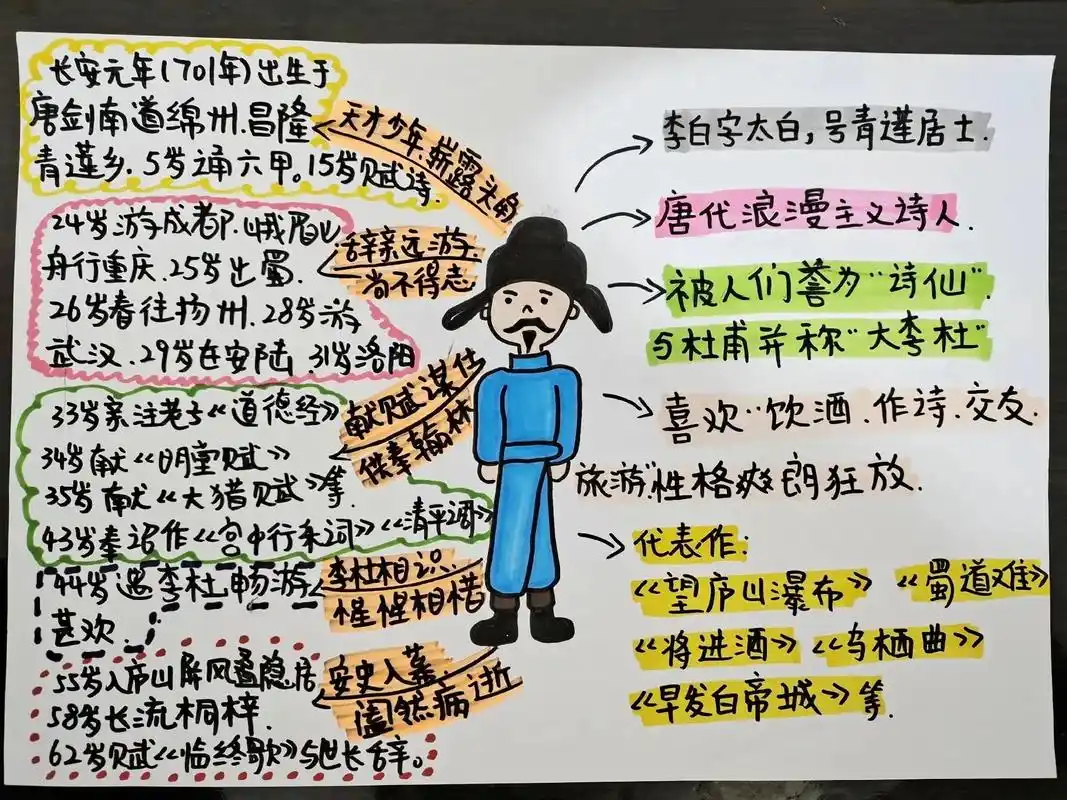 长安元年(701年)出生于
唐剑南道绵州.昌隆
青莲乡.5岁诵六甲。15岁赋诗.
天才少年.崭露头角
24岁游成都.峨眉山
舟行重庆.25岁出蜀.
26岁春往扬州.28岁游
武汉.29岁在安陆.31岁洛阳
辞亲远游.
尚不得志
33岁亲注老子《道德经》
34岁献《明堂赋》
35岁献《大猎赋》等
43岁奉诏作《宫中行乐词》《清平调》
献赋谋仕
供奉翰林
44岁遇李杜畅游
甚欢.
李杜相识.
惺惺相惜
55岁入庐山屏风叠隐居
58岁长流桐梓.
62岁赋《临终歌》与世长辞。
安史入幕.
阖然病逝
李白字太白,号青莲居士.
唐代浪漫主义诗人.
被人们誉为"诗仙".
与杜甫并称"大李杜"
喜欢"饮酒.作诗.交友.
旅游"性格爽朗狂放.
代表作:
《望庐山瀑布》 《蜀道难》
《将进酒》 《乌栖曲》
《早发白帝城》等.